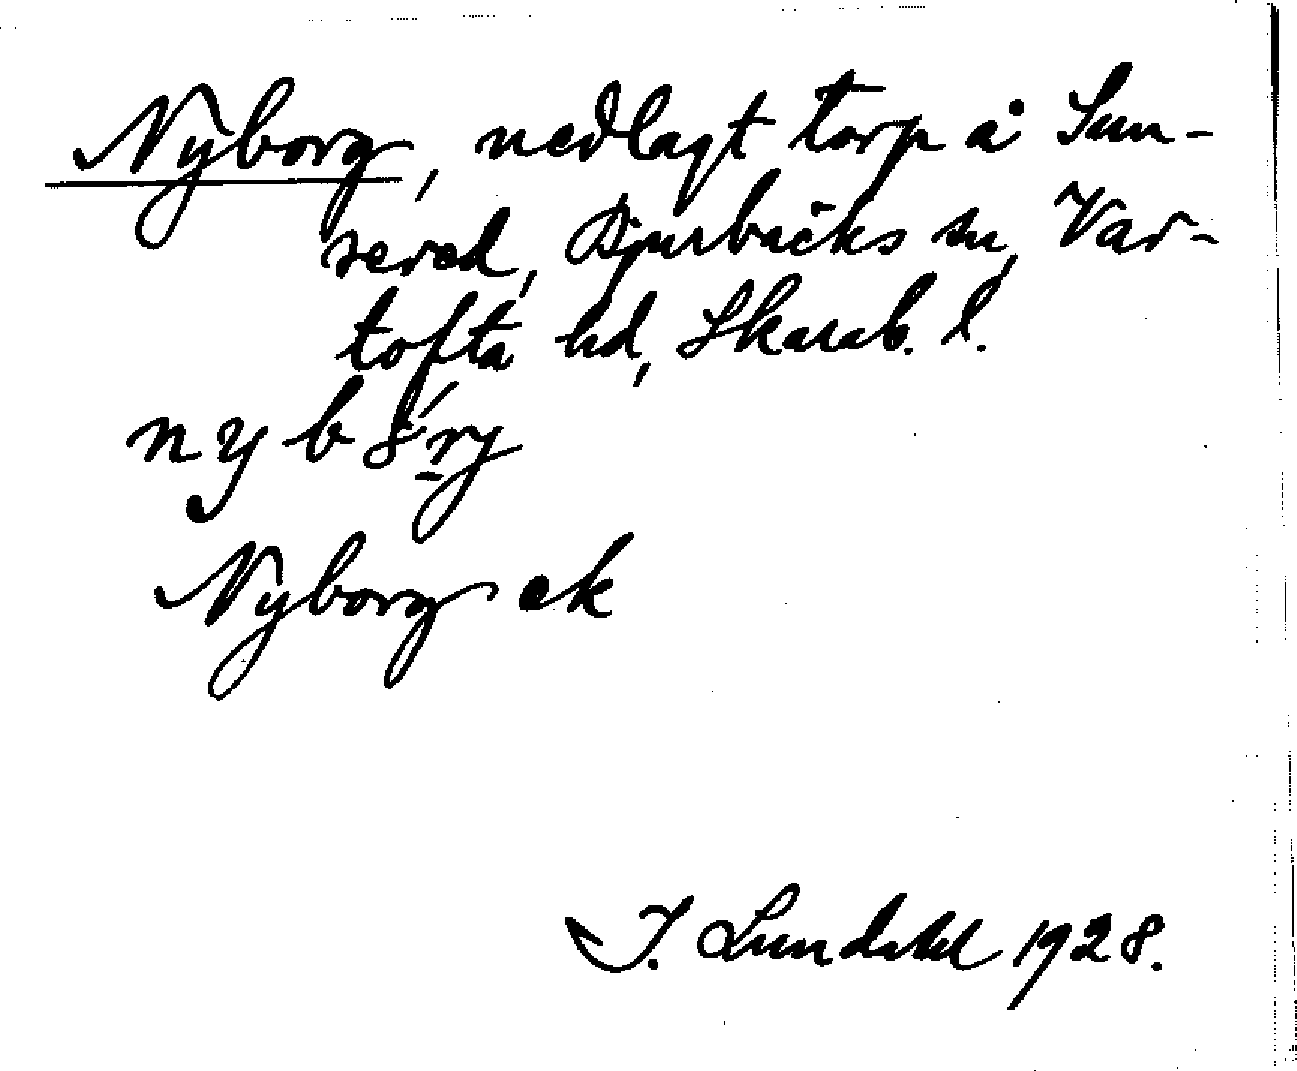 Nyborg, nedlagt torp å Sun-
sered, Djurbäcks sn, Var-
tofta hd, Skarab. l.
Nyborg ek
I. Lundahl 1928.